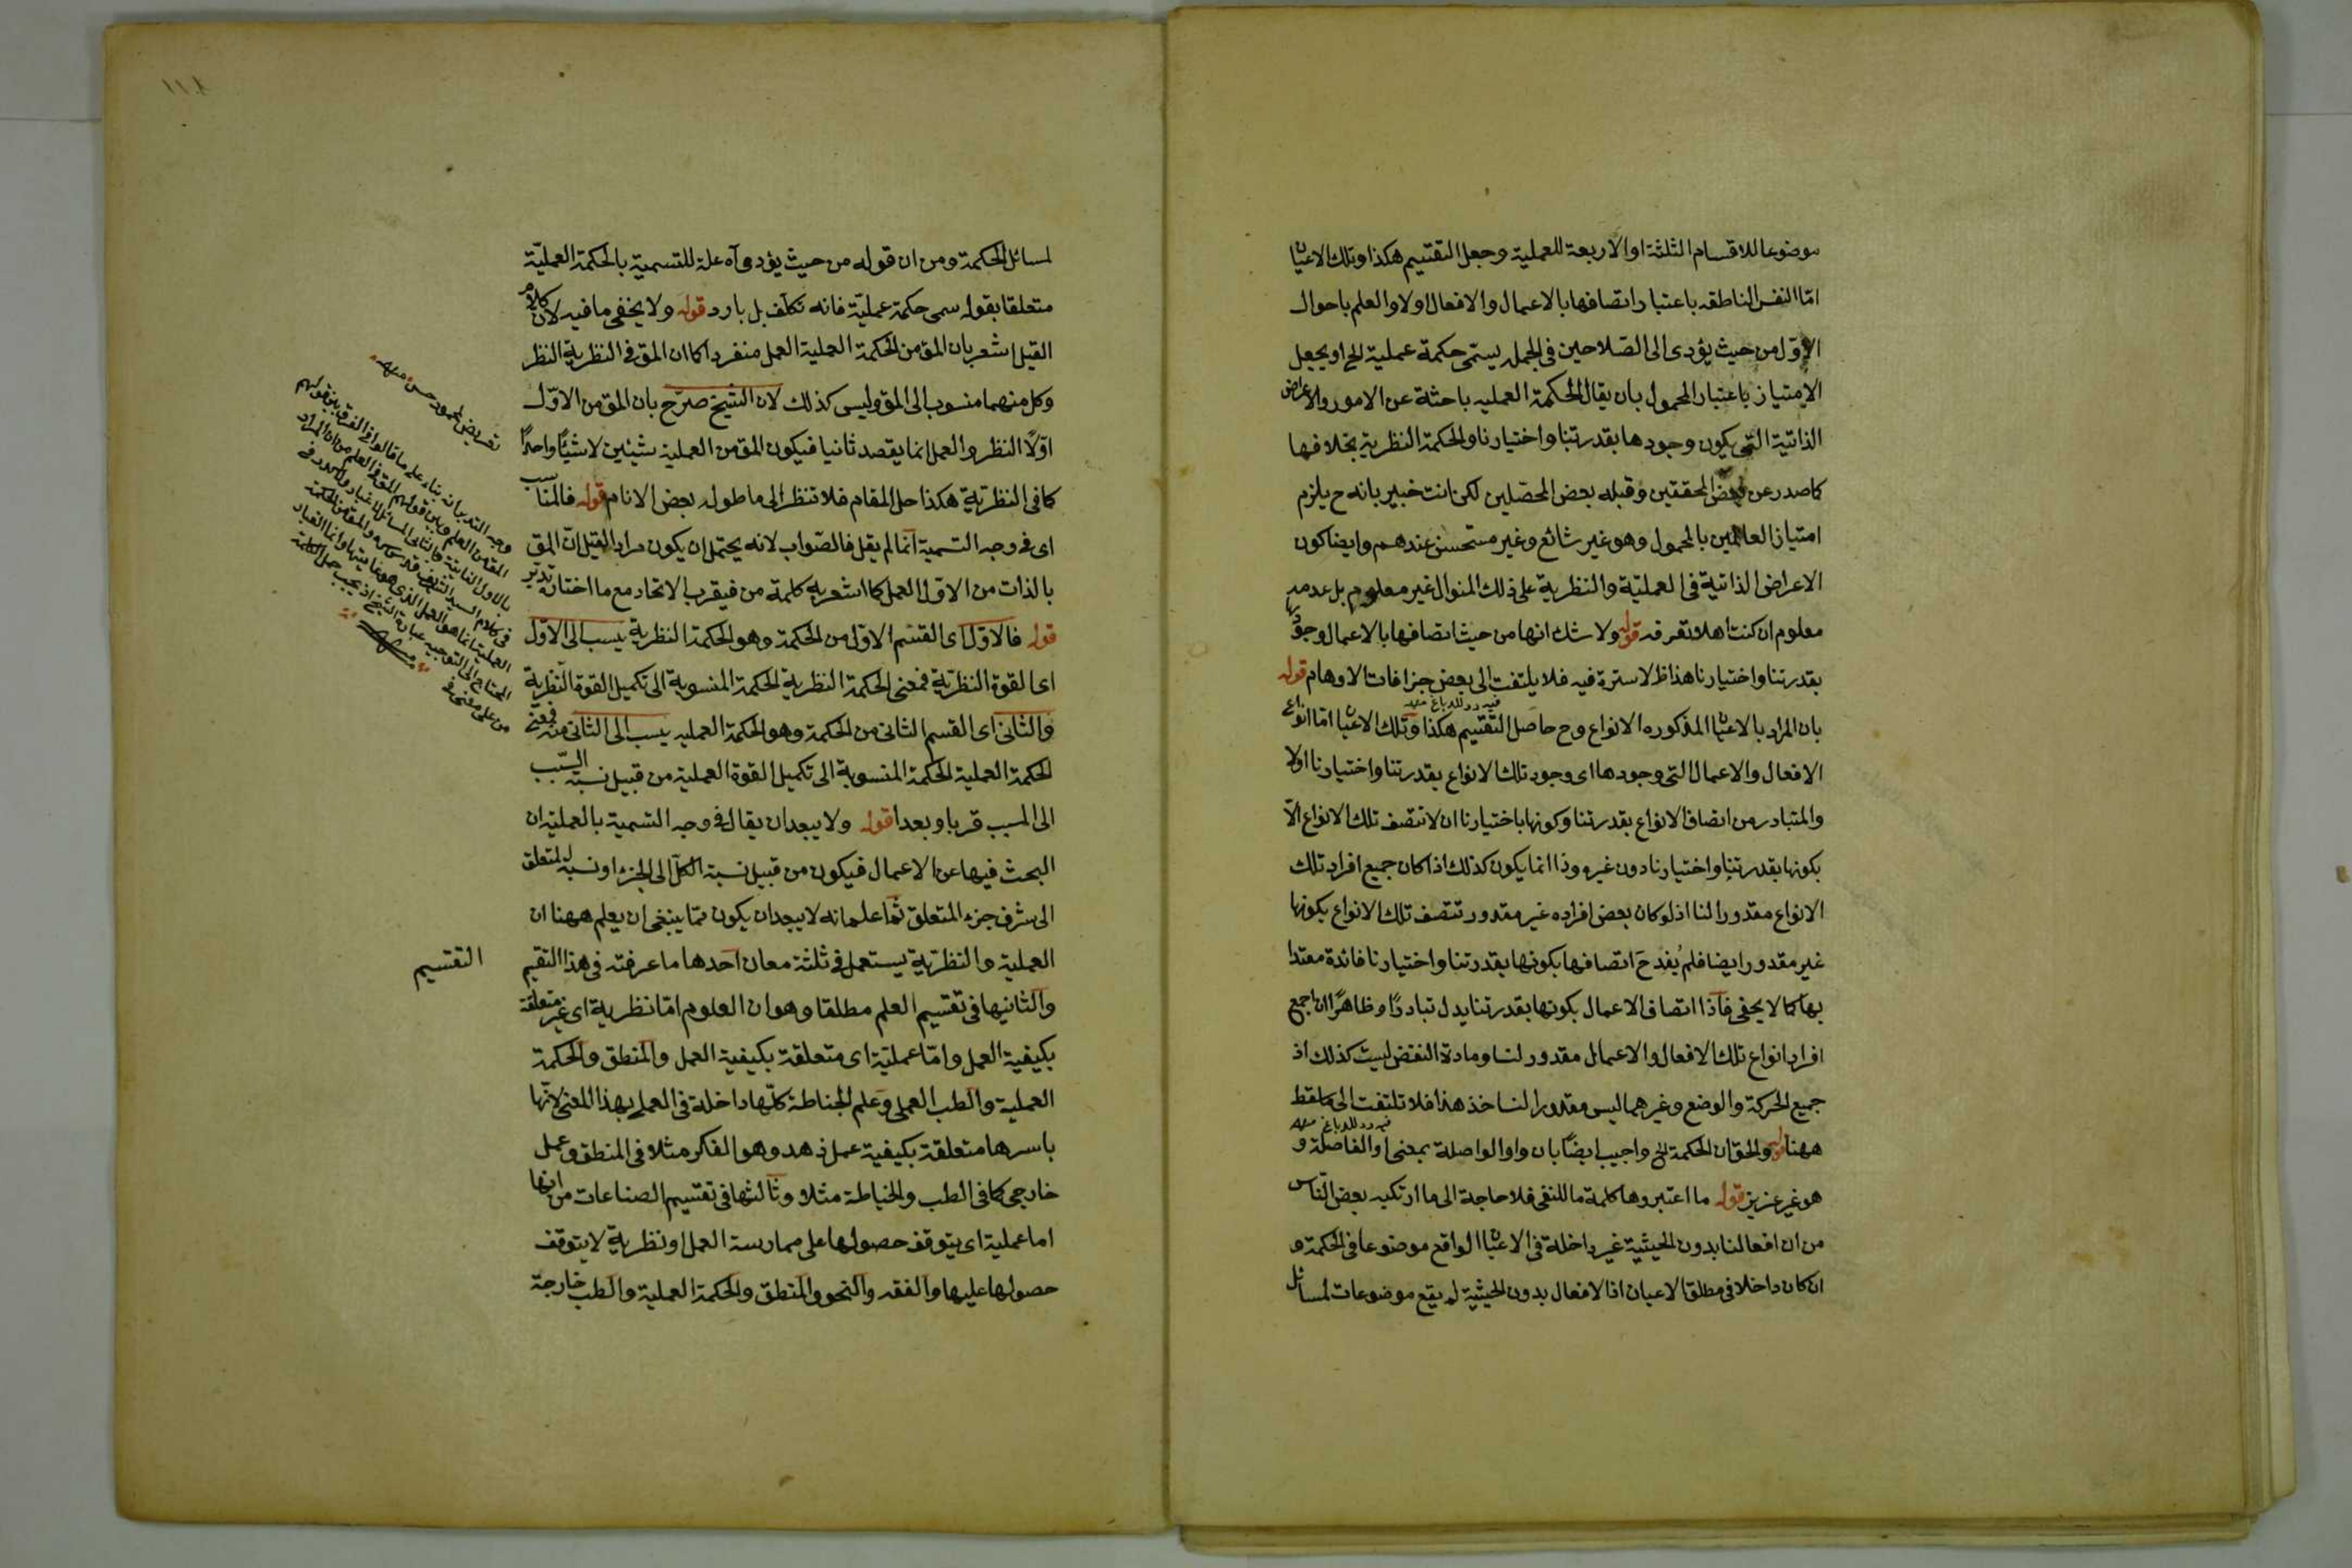 موضوعا للاقسام الثلثة او الاربعة للعملية وجعل التقسيم هكذا وتلك الاعيان
امّا النفس الناطقه باعتبار اتصافها بالاعمال والافعال اولا والعلم باحوال
الاوّل من حيث يؤدى الى الصّلاحين فى الجمله يسمّى حكمة عملية الخ او يجعل
الامتياز باعتبار المحمول بان يقال الحكمة العمليه باحثة عن الامور والاعراض
الذاتية التى يكون وجودها بقدرتنا واختيارنا والحكمة النظرية بخلافها
كما صدر عن بعض المحققين وقبله بعض المحصّلين لكن انت خبير بانه ح يلزم
امتياز العلمين بالمحمول وهو غير شائع وغير مستحسن عندهم وايضا كون
الاعراض الذاتية فى العمليّة والنظرية على ذلك المنوال غير معلوم بل عدمه
معلوم ان كنت اهلا تعرفه قوله ولا شك انها من حيث اتصافها بالاعمال وجودها
بقدرتنا واختيارنا هذا ظ لا سترة فيه فلا يلتفت الى بعض جزافات الاوهام قوله
فيه رد للدباغ منه
بان المراد بالاعيان المذكوره الانواع وح حاصل التقسيم هكذا وتلك الاعيان امّا انواع
الافعال والاعمال التى وجودها اى وجود تلك الانواع بقدرتنا واختيارنا اولا
والمتبادر من اتصاف الانواع بقدرتنا وكونها باختيارنا ان لا تتصف تلك الانواع الّا
بكونها بقدرتنا واختيارنا دون غيره وذا انما يكون كذلك اذا كان جميع افراد تلك
الانواع مقدورا لنا اذ لو كان بعض افراده غير مقدور تتصف تلك الانواع بكونها
غير مقدور ايضا فلم يُفد ح اتصافها بكونها بقدرتنا واختيارنا فائدة معتدا
بها كما لا يخفى فاذا اتصاف الاعمال بكونها بقدرتنا يدل تبادرًا وظاهرًا ان جميع
افراد انواع تلك الافعال والاعمال مقدور لنا ومادة النقض ليست كذلك اذ
جميع الحركة والوضع وغيرهما ليس مقدورا لنا خذ هذا فلا تلتفت الى ما لقط
فيه رد للدباغ منه
ههنا قوله والحق ان الحكمة الخ واجيب ايضًا بان واو الواصلة بمعنى او الفاصلة و
هو غير عزيز قوله ما اعتبروها كلمة ما للنفى فلا حاجة الى ما ارتكبه بعض النّاس
من ان افعالنا بدون الحيثية غير داخلة فى الاعيان الواقع موضوعا فى الحكمة و
ان كان داخلا فى مطلق الاعيان اذ الافعال بدون الحيثية لم يقع موضوعات لمسائل
لمسائل الحكمة ومن ان قوله من حيث يؤدى آه علة للتسمية بالحكمة العمليّة
متعلقا بقوله سمى حكمة عمليّة فانه تكلّف بل بارد قوله ولا يخفى ما فيه لان كلام
القيل اشعر بان المق من الحكمة العملية العمل منفردا كما ان المق فى النظرية النظر
وكل منهما منسوب الى المق وليس كذلك لان الشيخ صرّح بان المق من الاوّل
اوّلًا النظر والعمل انما يقصد ثانيا فيكون المق من العملية شيئين لا شيئًا واحدًا
كما فى النظريّة هكذا حل المقام فلا تنظر الى ما طوله بعض الانام قوله فالمناسب
اى فى وجه التسمية انّما لم يقل فالصّواب لانه يحتمل ان يكون مراد القيل انّ المق
بالذات من الاوّل العمل كما اشعر به كلمة من فيقرب الاتحاد مع ما اختاره تدبّر
قوله فالاوّل اى القسم الاوّل من الحكمة وهو الحكمة النظرية ينسب الى الاوّل
اى القوة النظريّة فمعنى الحكمة النظرية الحكمة المنسوبة الى تكميل القوة النّظرية
والثانى اى القسم الثانى من الحكمة وهو الحكمة العمليه ينسب الى الثانى منه فمعنى
الحكمة العملية الحكمة المنسوبة الى تكميل القوة العملية من قبيل نسبة السّبب
الى المسبب قربا وبعدا قوله ولا يبعد ان يقال فى وجه التسمية بالعملية ان
البحث فيها عن الاعمال فيكون من قبيل نسبة الكلّ الى الجزء او نسبة المتعلق
الى شرف جزء المتعلق ثمّ اعلم انه لا يبعد ان يكون ممّا ينبغى ان يعلم ههنا ان
العملية والنظريّة يستعمل فى ثلثة معان احدها ما عرفته فى هذا التقسيم
التقسيم
والثانيها فى تقسيم العلم مطلقا وهو ان العلوم امّا نظرية اى غير متعلقة
بكيفية العمل وامّا عمليّة اى متعلقة بكيفية العمل والمنطق والحكمة
العملية والطب العملى وعلم الخياطة كلّها داخلة فى العملى بهذا المعنى لانّها
باسرها متعلقة بكيفية عمل ذهنى وهو الفكر مثلا فى المنطق وعمل
خارجى كما فى الطب والخياطة مثلا وثالثها فى تقسيم الصناعات من انها
اما عملية اى يتوقف حصولها على ممارسة العمل او نظرية لا يتوقف
حصولها عليها والفقه والنحو والمنطق والحكمة العملية والطب خارجة
تعريض لمحمود حسن منه
وجه التدبر انه بناء على ما قالوا فى الفرق بين قولهم
المق من العلم وبين قولهم المق فى العلم من ان المراد